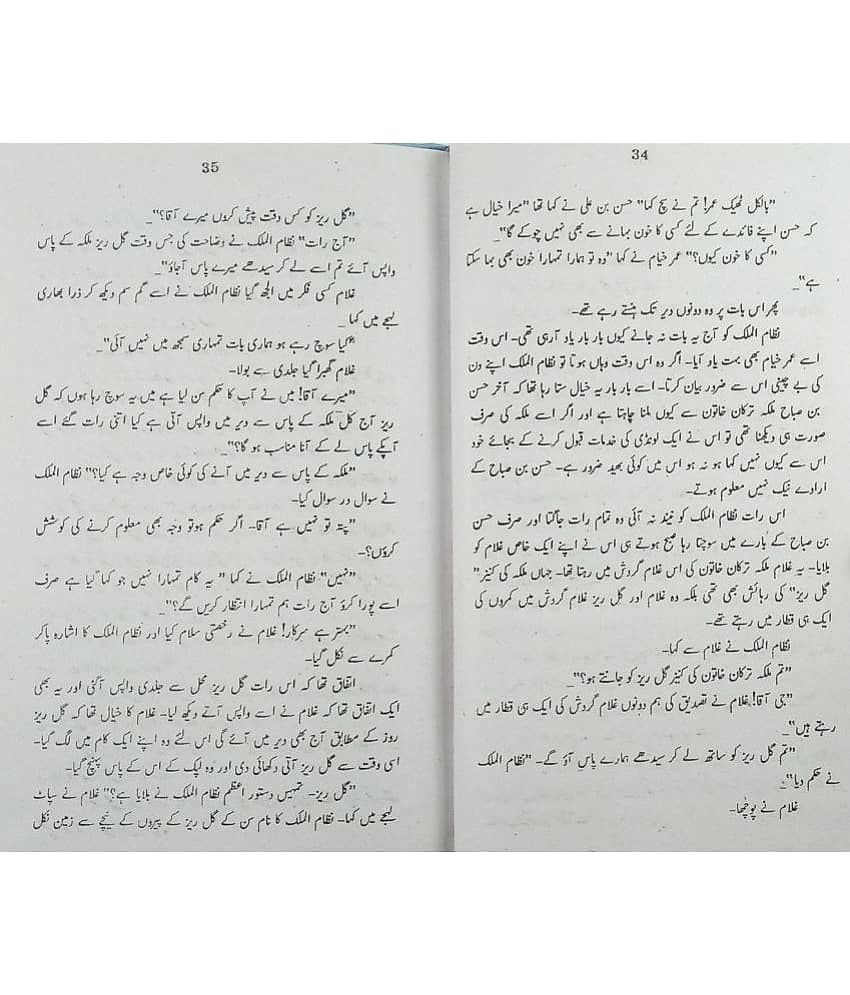 34
"بالکل ٹھیک عمر! تم نے سچ کہا" حسن بن علی نے کہا تھا "میرا خیال ہے
کہ حسن اپنے فائدے کے لئے کسی کا خون بہانے سے بھی نہیں چوکے گا"۔
"کسی کا خون کیوں؟" عمر خیام نے کہا "وہ تو ہمارا تمہارا خون بھی بہا سکتا
ہے"۔
پھر اس بات پر وہ دونوں دیر تک ہنستے رہے تھے۔
نظام الملک کو آج یہ بات نہ جانے کیوں بار بار یاد آ رہی تھی۔ اس وقت
اسے عمر خیام بھی بہت یاد آیا۔ اگر وہ اس وقت وہاں ہوتا تو نظام الملک اپنے دن
کی بے چینی اس سے ضرور بیان کرتا۔ اسے بار بار یہ خیال ستا رہا تھا کہ آخر حسن
بن صباح ملکہ ترکان خاتون سے کیوں ملنا چاہتا ہے اور اگر اسے ملکہ کی صرف
صورت ہی دیکھنا تھی تو اس نے ایک لونڈی کی خدمات قبول کرنے کے بجائے خود
اس سے کیوں نہیں کہا ہو نہ ہو اس میں کوئی بھید ضرور ہے۔ حسن بن صباح کے
ارادے نیک نہیں معلوم ہوتے۔
اس رات نظام الملک کو نیند نہ آئی وہ تمام رات جاگتا اور صرف حسن
بن صباح کے بارے میں سوچتا رہا صبح ہوتے ہی اس نے اپنے ایک خاص غلام کو
بلایا۔ یہ غلام ملکہ ترکان خاتون کی اس غلام گردش میں رہتا تھا۔ جہاں ملکہ کی کنیز "
گل ریز" کی رہائش بھی تھی بلکہ وہ غلام اور گل ریز غلام گردش میں کمروں کی
ایک ہی قطار میں رہتے تھے۔
نظام الملک نے غلام سے کہا۔
"تم ملکہ ترکان خاتون کی کنیز گل ریز کو جانتے ہو؟"۔
"جی آقا! غلام نے تصدیق کی ہم دونوں غلام گردش کی ایک ہی قطار میں
رہتے ہیں"۔
"تم گل ریز کو ساتھ لے کر سیدھے ہمارے پاس آؤ گے۔ "نظام الملک
نے حکم دیا"۔
غلام نے پوچھا۔
35
"گل ریز کو کس وقت پیش کروں میرے آقا؟"۔
"آج رات" نظام الملک نے وضاحت کی جس وقت گل ریز ملکہ کے پاس
واپس آئے تم اسے لے کر سیدھے میرے پاس آجاؤ"۔
غلام کسی فکر میں الجھ گیا نظام الملک نے اسے گم سم دیکھ کر ذرا بھاری
لہجے میں کہا۔
"کیا سوچ رہے ہو ہماری بات تمہاری سمجھ میں نہیں آئی"۔
غلام گھبرا گیا جلدی سے بولا۔
"میرے آقا! میں نے آپ کا حکم سن لیا ہے میں یہ سوچ رہا ہوں کہ گل
ریز آج کل ملکہ کے پاس سے دیر میں واپس آتی ہے کیا اتنی رات گئے اسے
آپکے پاس لے کے آنا مناسب ہو گا؟"۔
"ملکہ کے پاس سے دیر میں آنے کی کوئی خاص وجہ ہے کیا؟" نظام الملک
نے سوال در سوال کیا۔
"پتہ تو نہیں ہے آقا۔ اگر حکم ہوتو وجہ بھی معلوم کرنے کی کوشش
کروں؟۔
"نہیں" نظام الملک نے کہا "یہ کام تمہارا نہیں جو کہا گیا ہے صرف
اسے پورا کرو آج رات ہم تمہارا انتظار کریں گے؟"۔
"بہتر ہے سرکار! غلام نے رخصتی سلام کیا اور نظام الملک کا اشارہ پاکر
کمرے سے نکل گیا۔
اتفاق تھا کہ اس رات گل ریز محل سے جلدی واپس آگئی اور یہ بھی
ایک اتفاق تھا کہ غلام نے اسے واپس آتے دیکھ لیا۔ غلام کا خیال تھا کہ گل ریز
روز کے مطابق آج بھی دیر میں آئے گی اس لئے وہ اپنے ایک کام میں لگ گیا۔
اسی وقت سے گل ریز آتی دکھائی دی اور وہ لپک کے اس کے پاس پہنچ گیا۔
"گل ریز۔ تمہیں دستور اعظم نظام الملک نے بلایا ہے؟" غلام نے سپاٹ
لہجے میں کہا۔ نظام الملک کا نام سن کے گل ریز کے پیروں کے نیچے سے زمین نکل